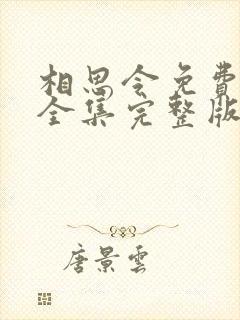 相思令免費
全集完整版
唐景雲